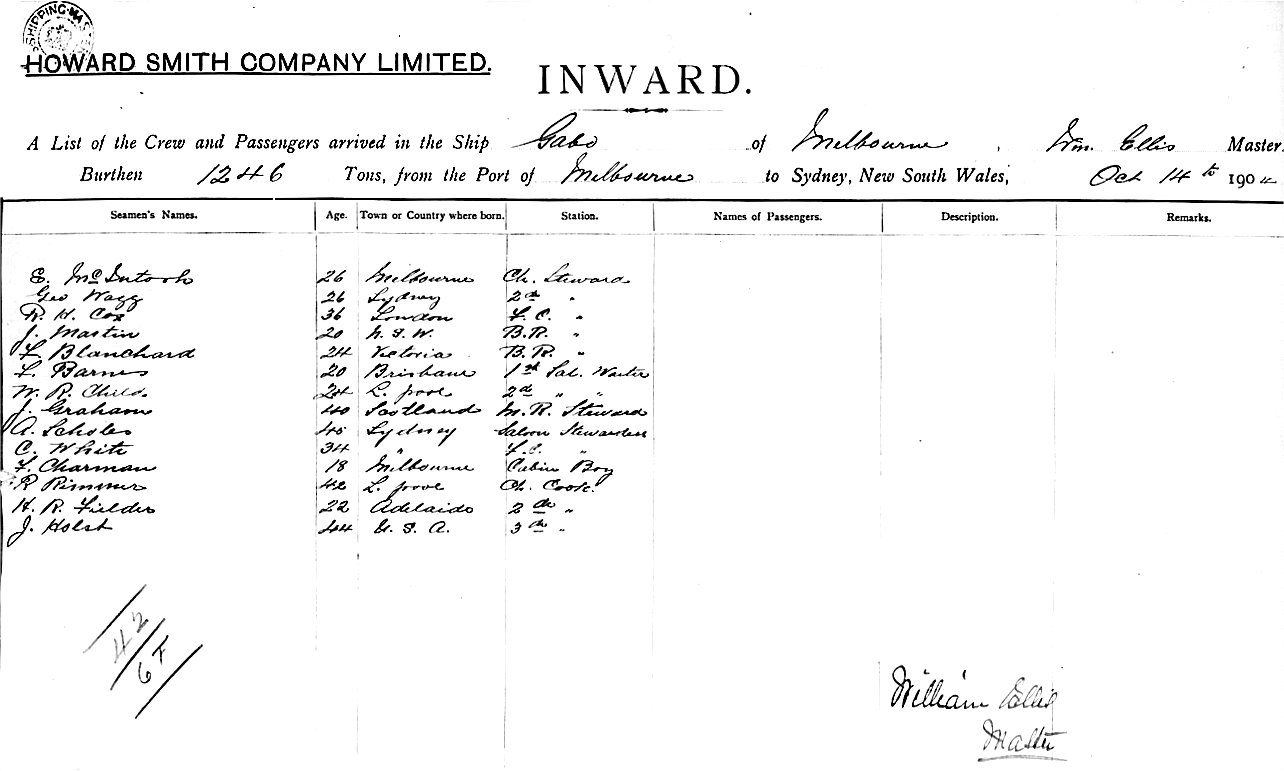 SHIPPING MAS
HOWARD SMITH COMPANY LIMITED.
INWARD.
A List of the Crew and Passengers arrived in the Ship Gabo of Melbourne, Wm. Ellis Master.
Burthen 1246 Tons, from the Port of Melbourne to Sydney, New South Wales, Oct 14th 1904
Seamen's Names. Age. Town or Country where born. Station. Names of Passengers. Description. Remarks.
E. McIntosh 26 Melbourne Ch. Steward
Geo Wagg 26 Sydney 2nd "
R. H. Cox 36 London F. C. "
J. Martin 20 N. S. W. B.R. "
F Blanchard 24 Victoria B.R. "
F. Barnes 20 Brisbane 1st Sal. Waiter
W. R. Child. 24 L. pool 2nd " "
J. Graham 40 Scotland M. R. Steward
A. Scholes 45 Sydney Saloon Stewardess
C. White 34 " F.C. "
F. Charman 18 Melbourne Cabin Boy
R Rimmer 42 L. pool Ch. Cook.
H. R. Fielder 22 Adelaide 2nd "
J. Holst 44 U. S. A. 3rd "
42
6F
William Ellis
Master